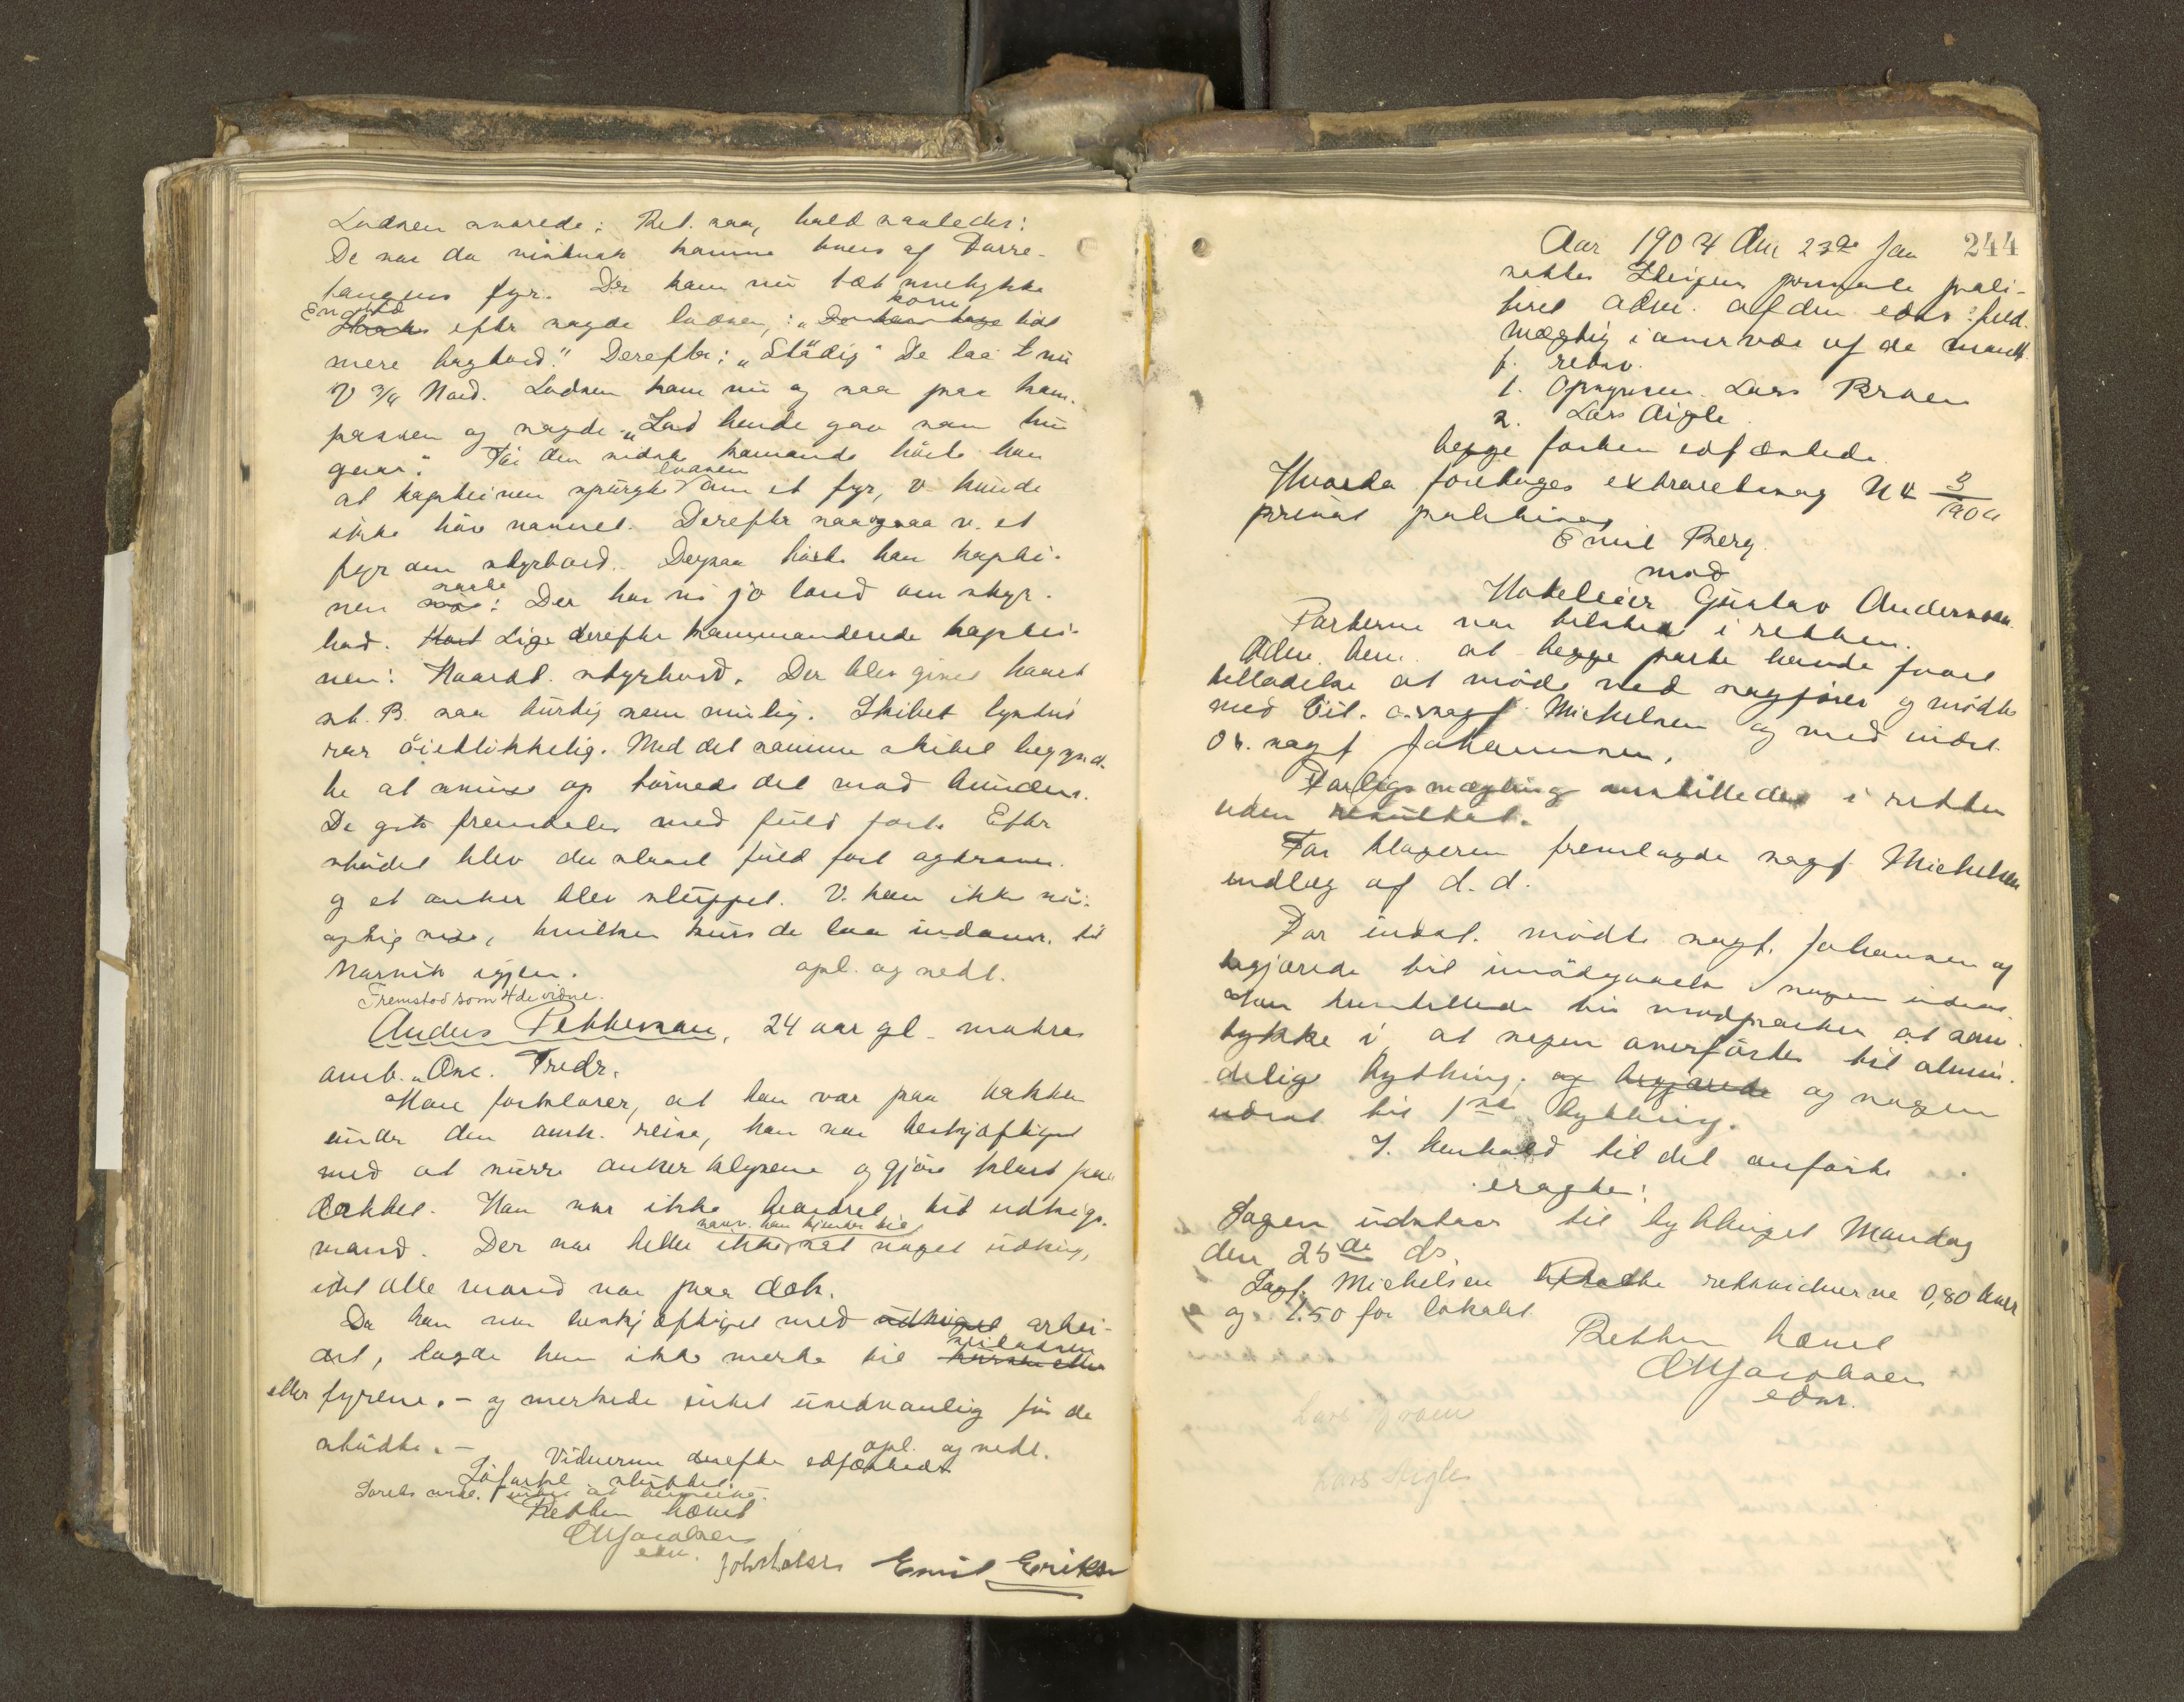 Lodsen svarede: Ret saa, hold saaledes:
De var da vistnok komne tvers af Barre-
tangens fyr. Der kom nu tæt snetykke
En stund efter sagde lodsen, : "kom lidt
mere bagbord." Derefter: "Stødig" De laa t nu
V 3/4 Nord. Lodsen kom nu og saa paa kom-
passen og sagde "Lad hende gaa som hun
gaar." Fra den sidste kommando hørte han
at kapteinen spurgte lodsen om et fyr, v. kunde
ikke høre navnet. Derefter saa ogsaa v. et
fyr om styrbord. Derpaa hørte han kaptei-
nen raabe: Der har vi jo land om styr-
bord. Hart Lige derefter kommanderede kaptei-
nen: Haardt styrbord. Der blev givet haardt
st. B. saa hurtig som mulig. Skibet lystred
ror øieblikkelig. Med det samme skibet begynd-
te at svinge op tørnede det mod bunden.
De gik fremdeles med fuld fart. Efter
stødet blev der slaaet fuld fart agterover
og et anker blev sluppet. V. kan ikke nø-
agtig vide, hvilken kurs de laa indover til
Narvik igjen. opl. og vedt.
Fremstod som 4de vidne.
Anders Pettersen, 24 aar gl. matros
omb. "Osc. Fredr.
Han forklarer, at han var paa bakken
under den omh. reise, han var beskjæftiget
med at surre ankerklysene og gjøre klart paa
dækket. Han var ikke beordret til udkigs-
mand. Der var heller ikke sat noget udkig,
saavidt han kjender til
idet alle mand var paa dæk.
Da han var beskjæftiget med udkiget arbei-
det, lagde han ikke merke til seiladsen
eller fyrene. - og merkede intet usedvanlig før de
stødte. - opl. og vedt.
Vidnerne derefter edfæstedes
Søforkl. sluttet.
Retten hævet
CMJacobsen
edsv. Emil Eriksen

Aar 1904 den 23de Jan 244
sattes Steigens private poli-
tiret adm. af den edsv. fuld-
mægtig i overvær af de mandt.
f. retsv.
1. Opsynsm. Lars Broen
2. Lars Aigle
begge forhen edfæstede
Hvorda foretoges extraretssag No 3/1904
privat politisag
Emil Berg
mod
Hotelleier Gustav Andersen
Parterne var tilstede i retten.
Adm. bem. at begge parter havde faaet
tilladelse at møde ved sagfører og mødte
med cit. o.sagf. Michelsen og med indst.
or. sagf Johannsen.
Forligsmægling anstilledes i retten
uden resultat.
For klageren fremlagde sagf. Michelsen
indlæg af d. d.
For indst. mødte sagf. Johansen og
begjærede til imødegaaelse sagen udsat.
Han henstillede til modparten at sam-
tykke i, at sagen overførtes til almin-
delige bygthing. og begjærede og sagen
udsat til 1ste bygthing.
I henhold til det anførte
eragtes:
Sagen udstaar til bygthinget Mandag
den 25de ds.
Sagf. Michelsen betalte retsvidnerne 0,80 hver
og 1.50 for lokalet
Retten hævet
CMJacobsen
edsv.
Lars Broen
Lars Aigle